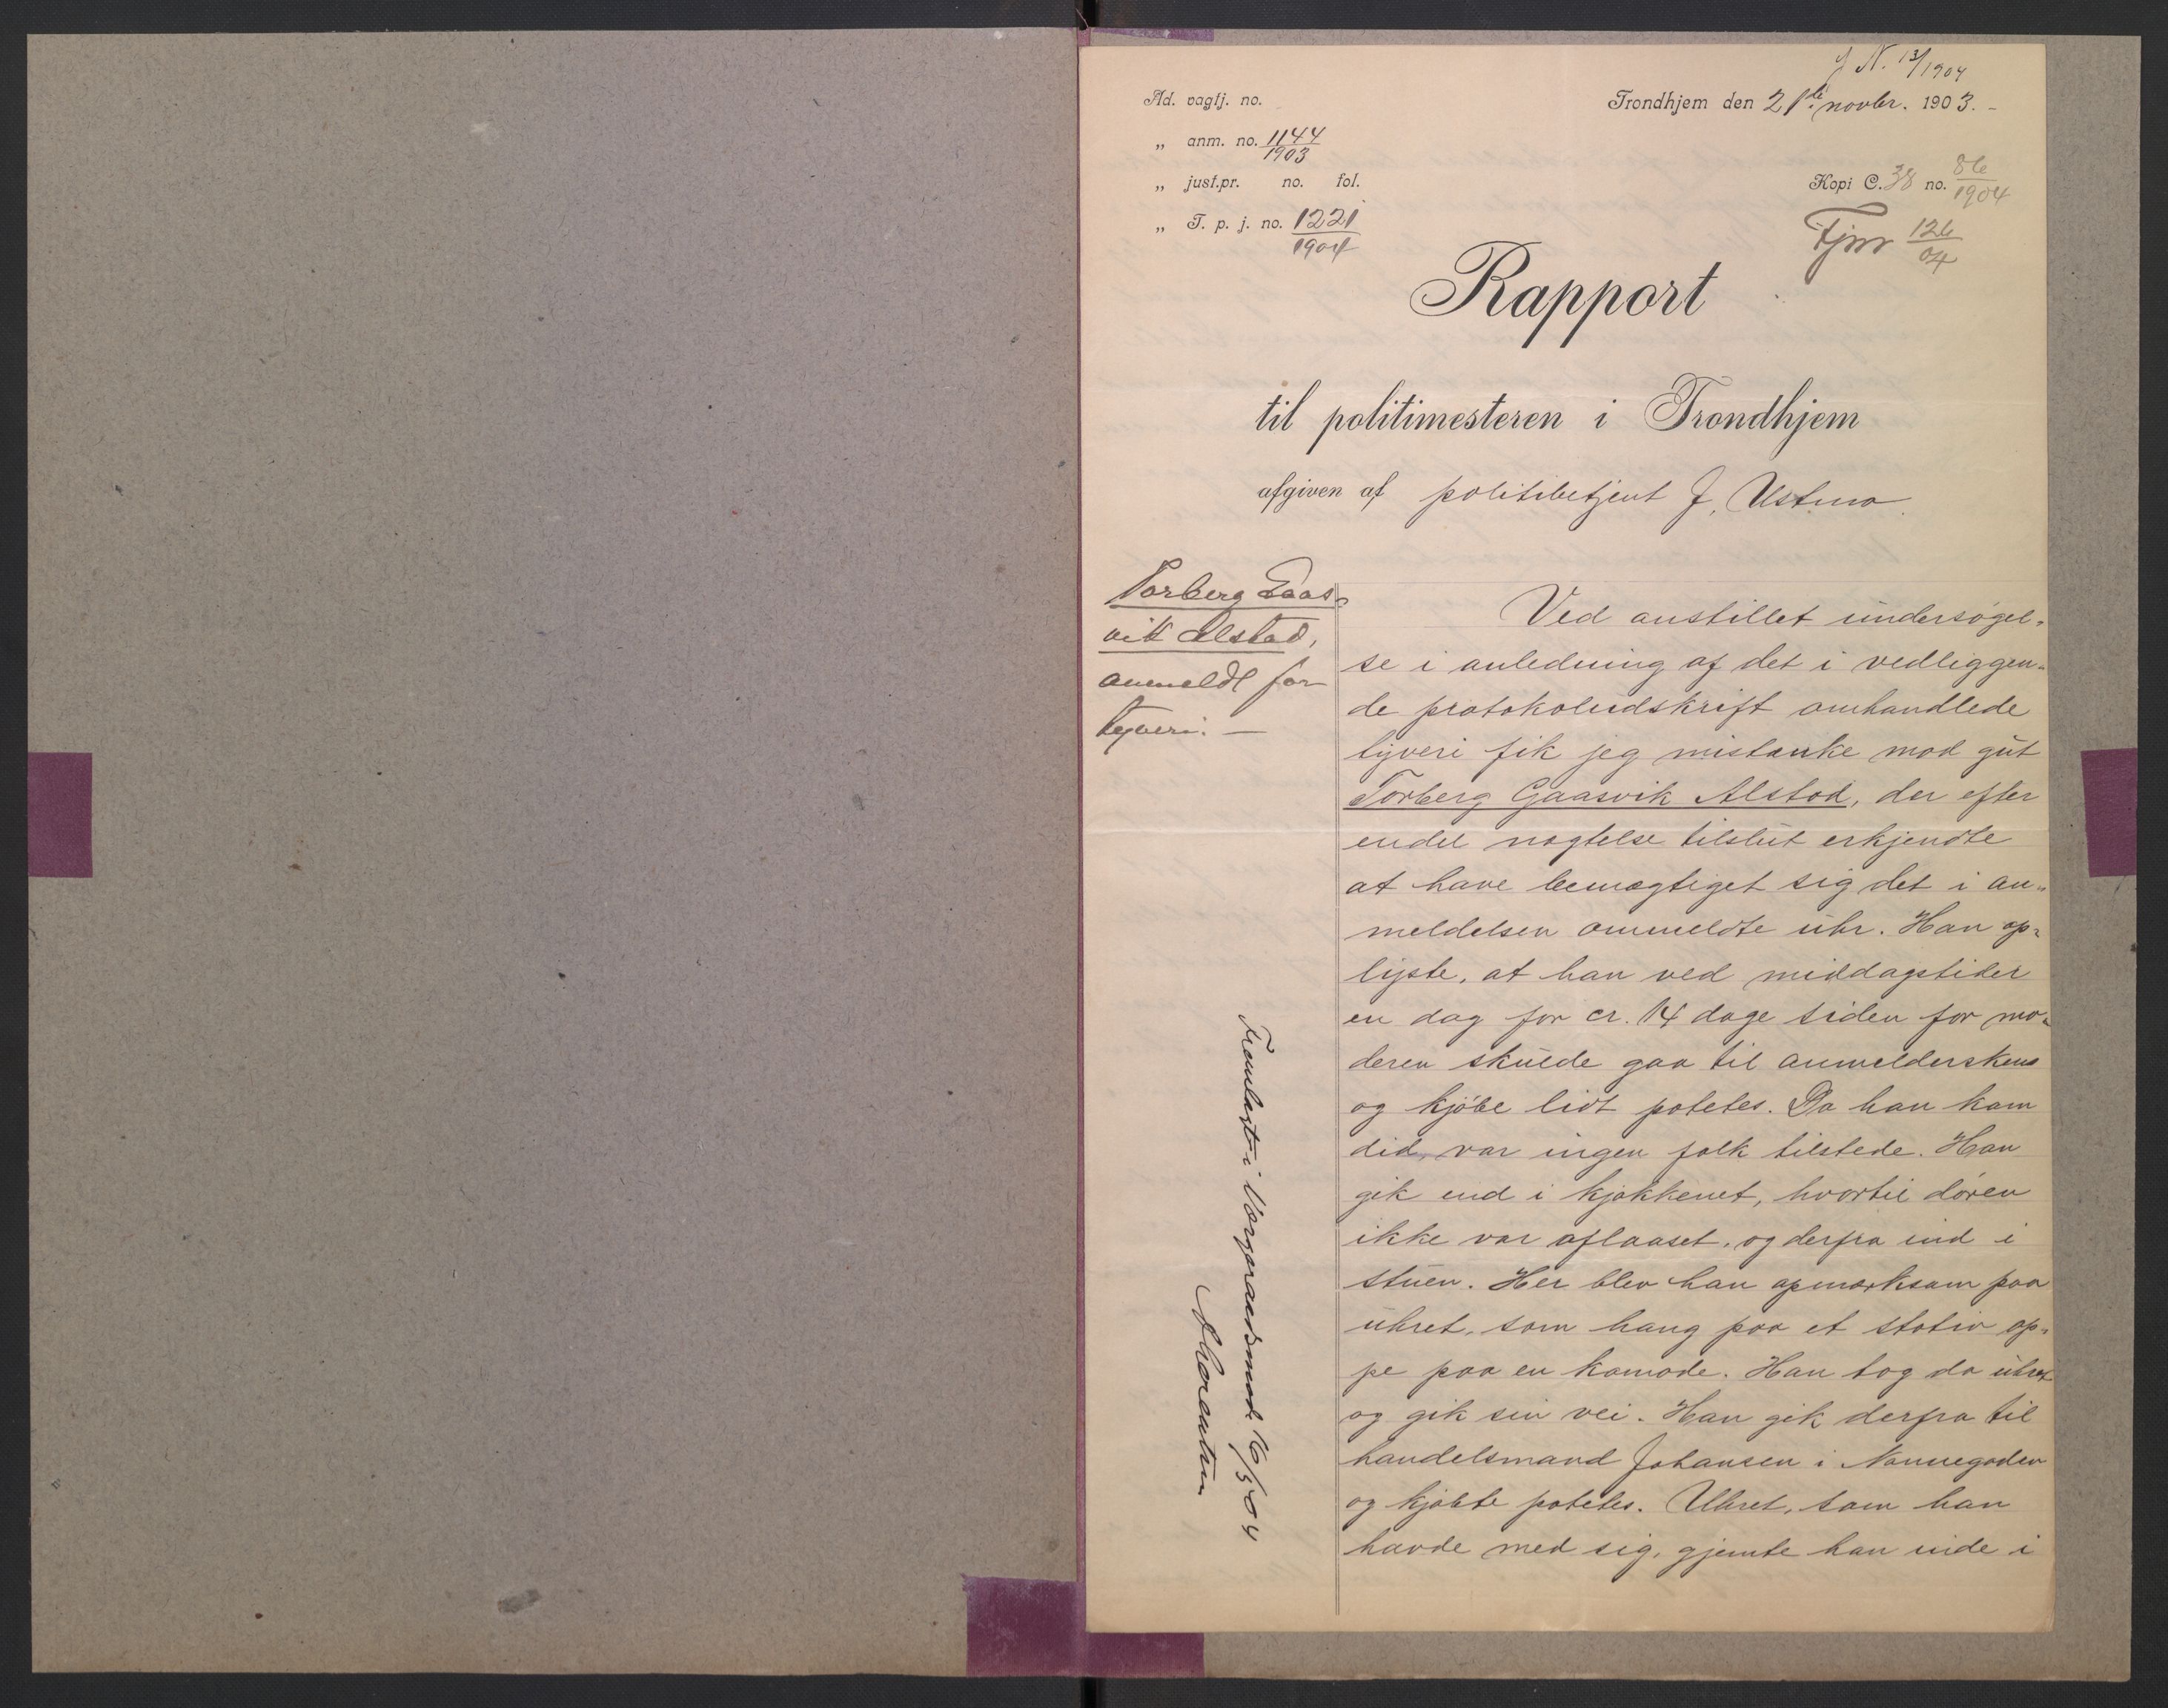 J N. 13/1904
Ad. vagtj. no.
Trondhjem den 21de novbr. 1903.
„ anm. no. 1144/1903
„ just.pr. no. fol.
Kopi C. 38 no. 86/1904
„ T. p. j. no. 1221/1904
Fjnr 126/04
Rapport
til politimesteren i Trondhjem
afgiven af politibetjent J. Ustmo.
Torberg Gaas-
vik Alstad,
anmeldt for
tyveri. —
Ved anstillet undersøgel-
se i anledning af det i vedliggen-
de protokoludskrift omhandlede
tyveri fik jeg mistanke mod gut
Torberg Gaasvik Alstad, der efter
endel nægtelse tilslut erkjendte
at have bemægtiget sig det i an-
meldelsen ommeldte uhr. Han op-
lyste, at han ved middagstider
en dag for cr. 14 dage siden for mo-
deren skulde gaa til anmelderskens
og kjöbe lidt potetes. Da han kom
did, var ingen folk tilstede. Han
gik ind i kjøkkenet, hvortil døren
ikke var aflaaset, og derfra ind i
stuen. Her blev han opmærksom paa
uhret, som hang paa et stativ op-
pe paa en komode. Han tog da uhret
og gik sin vei. Han gik derfra til
handelsmand Johansen i Nonnegaden
og kjøbte potetes. Uhret, som han
havde med sig, gjemte han inde i
Fremlagt i Værgeraadsmøde 16/3 04